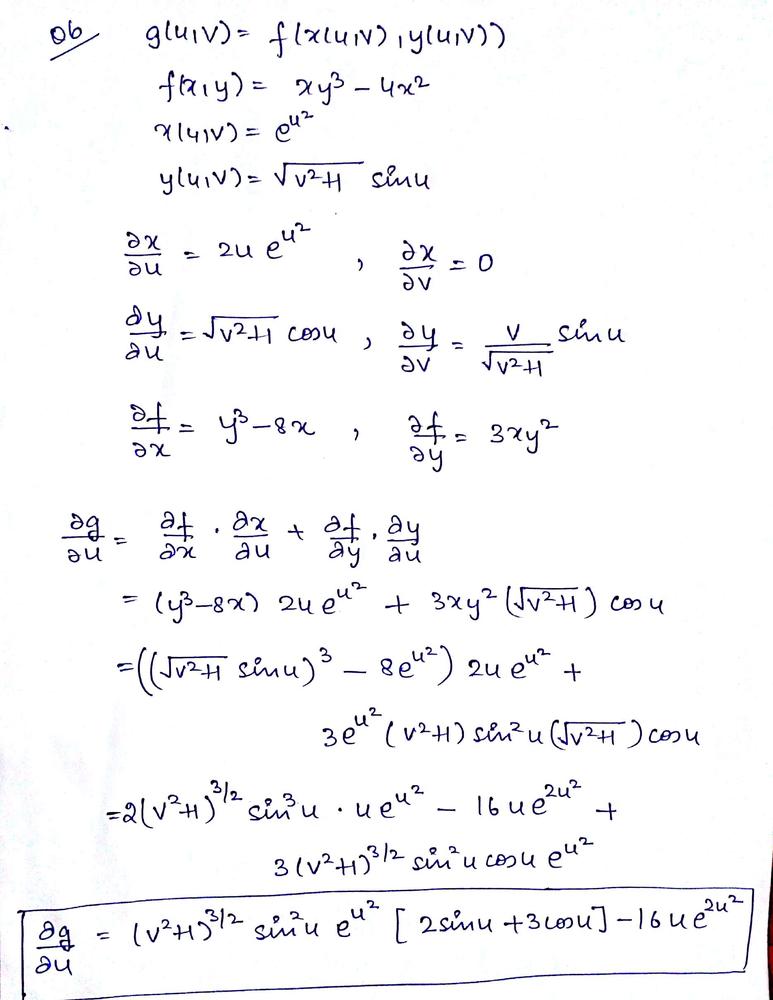 Q6 g(u,v) = f(x(u,v), y(u,v))
f(x,y) = xy³ - 4x²
x(u,v) = e^{u²}
y(u,v) = √(v²+1) sinu
∂x/∂u = 2u e^{u²} , ∂x/∂v = 0
∂y/∂u = √(v²+1) cosu , ∂y/∂v = v/√(v²+1) sinu
∂f/∂x = y³-8x , ∂f/∂y = 3xy²
∂g/∂u = ∂f/∂x · ∂x/∂u + ∂f/∂y · ∂y/∂u
= (y³-8x) 2u e^{u²} + 3xy² (√(v²+1)) cosu
= ((√(v²+1) sinu)³ - 8e^{u²}) 2u e^{u²} +
3e^{u²} (v²+1) sin²u (√(v²+1)) cosu
= 2(v²+1)^{3/2} sin³u · u e^{u²} - 16 u e^{2u²} +
3(v²+1)^{3/2} sin²u cosu e^{u²}
∂g/∂u = (v²+1)^{3/2} sin²u e^{u²} [2sinu + 3cosu] - 16 u e^{2u²}